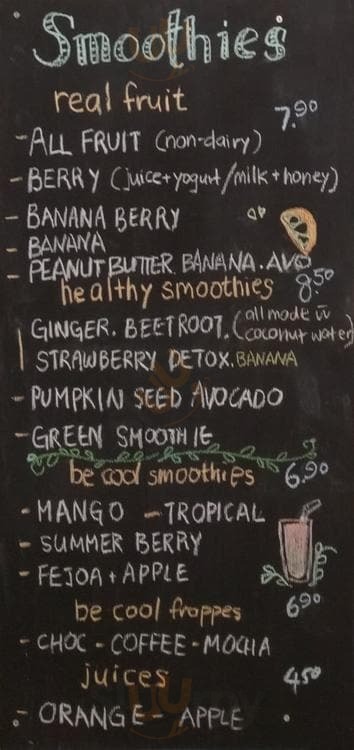 Smoothies
real fruit 7.90
- ALL FRUIT (non-dairy)
- BERRY (juice+yogurt/milk+honey)
- BANANA BERRY
- BANANA
- PEANUT BUTTER. BANANA. AVO
healthy smoothies 8.50
GINGER. BEETROOT. (all made w coconut water)
STRAWBERRY DETOX. BANANA
- PUMPKIN SEED AVOCADO
- GREEN SMOOTHIE
be cool smoothies 6.90
- MANGO - TROPICAL
- SUMMER BERRY
- FEJOA + APPLE
be cool frappes 6.90
- CHOC - COFFEE - MOCHA
juices 4.50
- ORANGE - APPLE